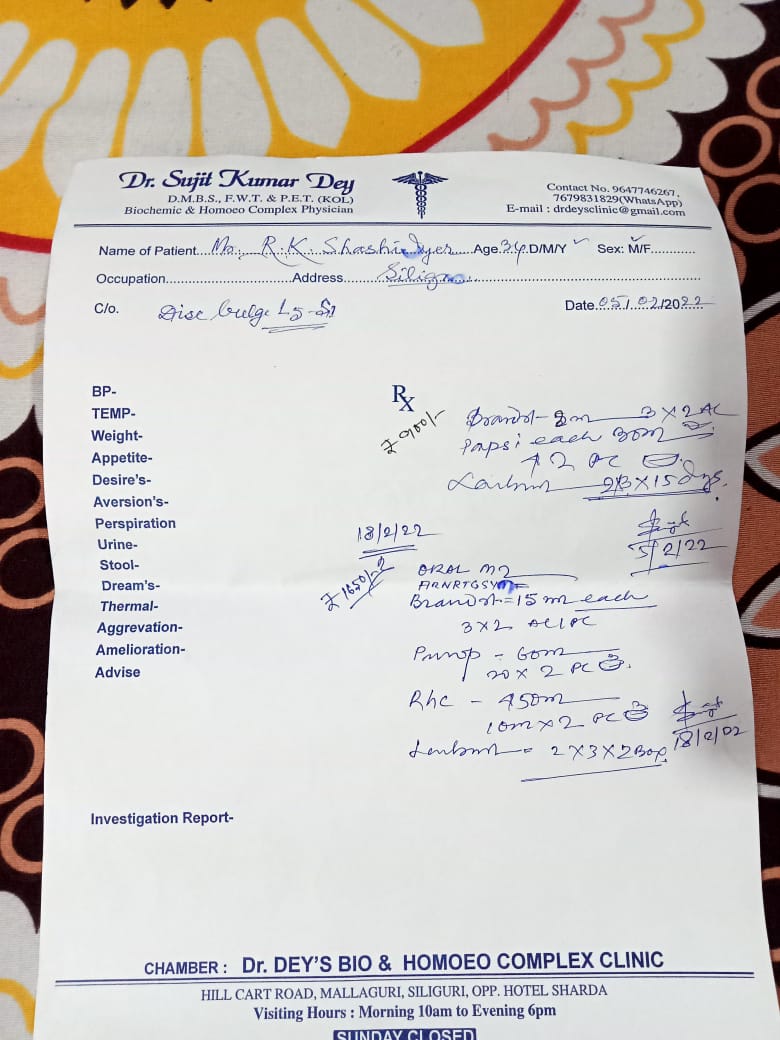 Dr. Sujit Kumar Dey
D.M.B.S., F.W.T. & P.E.T. (KOL)
Biochemic & Homoeo Complex Physician
Contact No. 9647746267,
7679831829(WhatsApp)
E-mail : drdeysclinic@gmail.com
Name of Patient.... R.K. Age.34.D/M/Y Sex: M/F............
Occupation............................Address
C/o. Disc bulge L5-S1
Date.05/.02/2022
BP-
TEMP-
Weight-
Appetite-
Desire's-
Aversion's-
Perspiration
Urine-
Stool-
Dream's-
Thermal-
Aggrevation-
Amelioration-
Advise
Rx
₹ 900/-
3 X 2 AC
each 30m
2 PC
X 15 dys.
5/2/22
18/2/22
₹ 1650/-
ORAL
15 m each
3 X 2 AC/PC
- 60m
20 X 2 PC
Rhc - 450m
10m X 2 PC
= 2 X 3 X 2 Box
18/2/22
Investigation Report-
CHAMBER : Dr. DEY'S BIO & HOMOEO COMPLEX CLINIC
HILL CART ROAD, MALLAGURI, SILIGURI, OPP. HOTEL SHARDA
Visiting Hours : Morning 10am to Evening 6pm
SUNDAY CLOSED